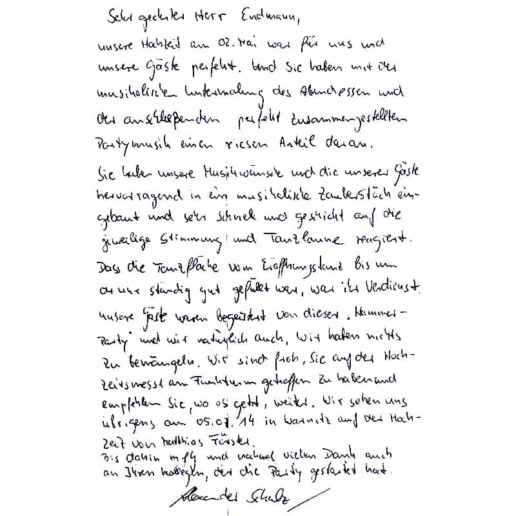 Sehr geehrter Herr Endmann,
unsere Hochzeit am 02. Mai war für uns und
unsere Gäste perfekt. Und Sie haben mit der
musikalischen Untermalung des Abendessen und
der anschließenden perfekt zusammengestellten
Partymusik einen riesen Anteil daran.
Sie haben unsere Musikwünsche und die unserer Gäste
hervorragend in ein musikalische Zauberstück ein-
gebaut und sehr schnell und geschickt auf die
jeweilige Stimmung und Tanzlaune reagiert.
Dass die Tanzfläche vom Eröffnungstanz bis um
uhr ständig gut gefüllt war, war ihr Verdienst.
unsere Gäste waren begeistert von dieser „Hammer-
Party" und wir natürlich auch. Wir haben nichts
zu bemängeln. Wir sind froh, Sie auf der Hoch-
zeitsmesse am Funkturm getroffen zu haben und
empfehlen Sie, wo es geht, weiter. Wir sehen uns
übrigens am 05.07.14 in Warnitz auf der Hoch-
zeit von Matthias Förster.
Bis dahin mfg und nochmal vielen Dank auch
an Ihren Kollegen, der die Party gestartet hat.
Alexander Schulz